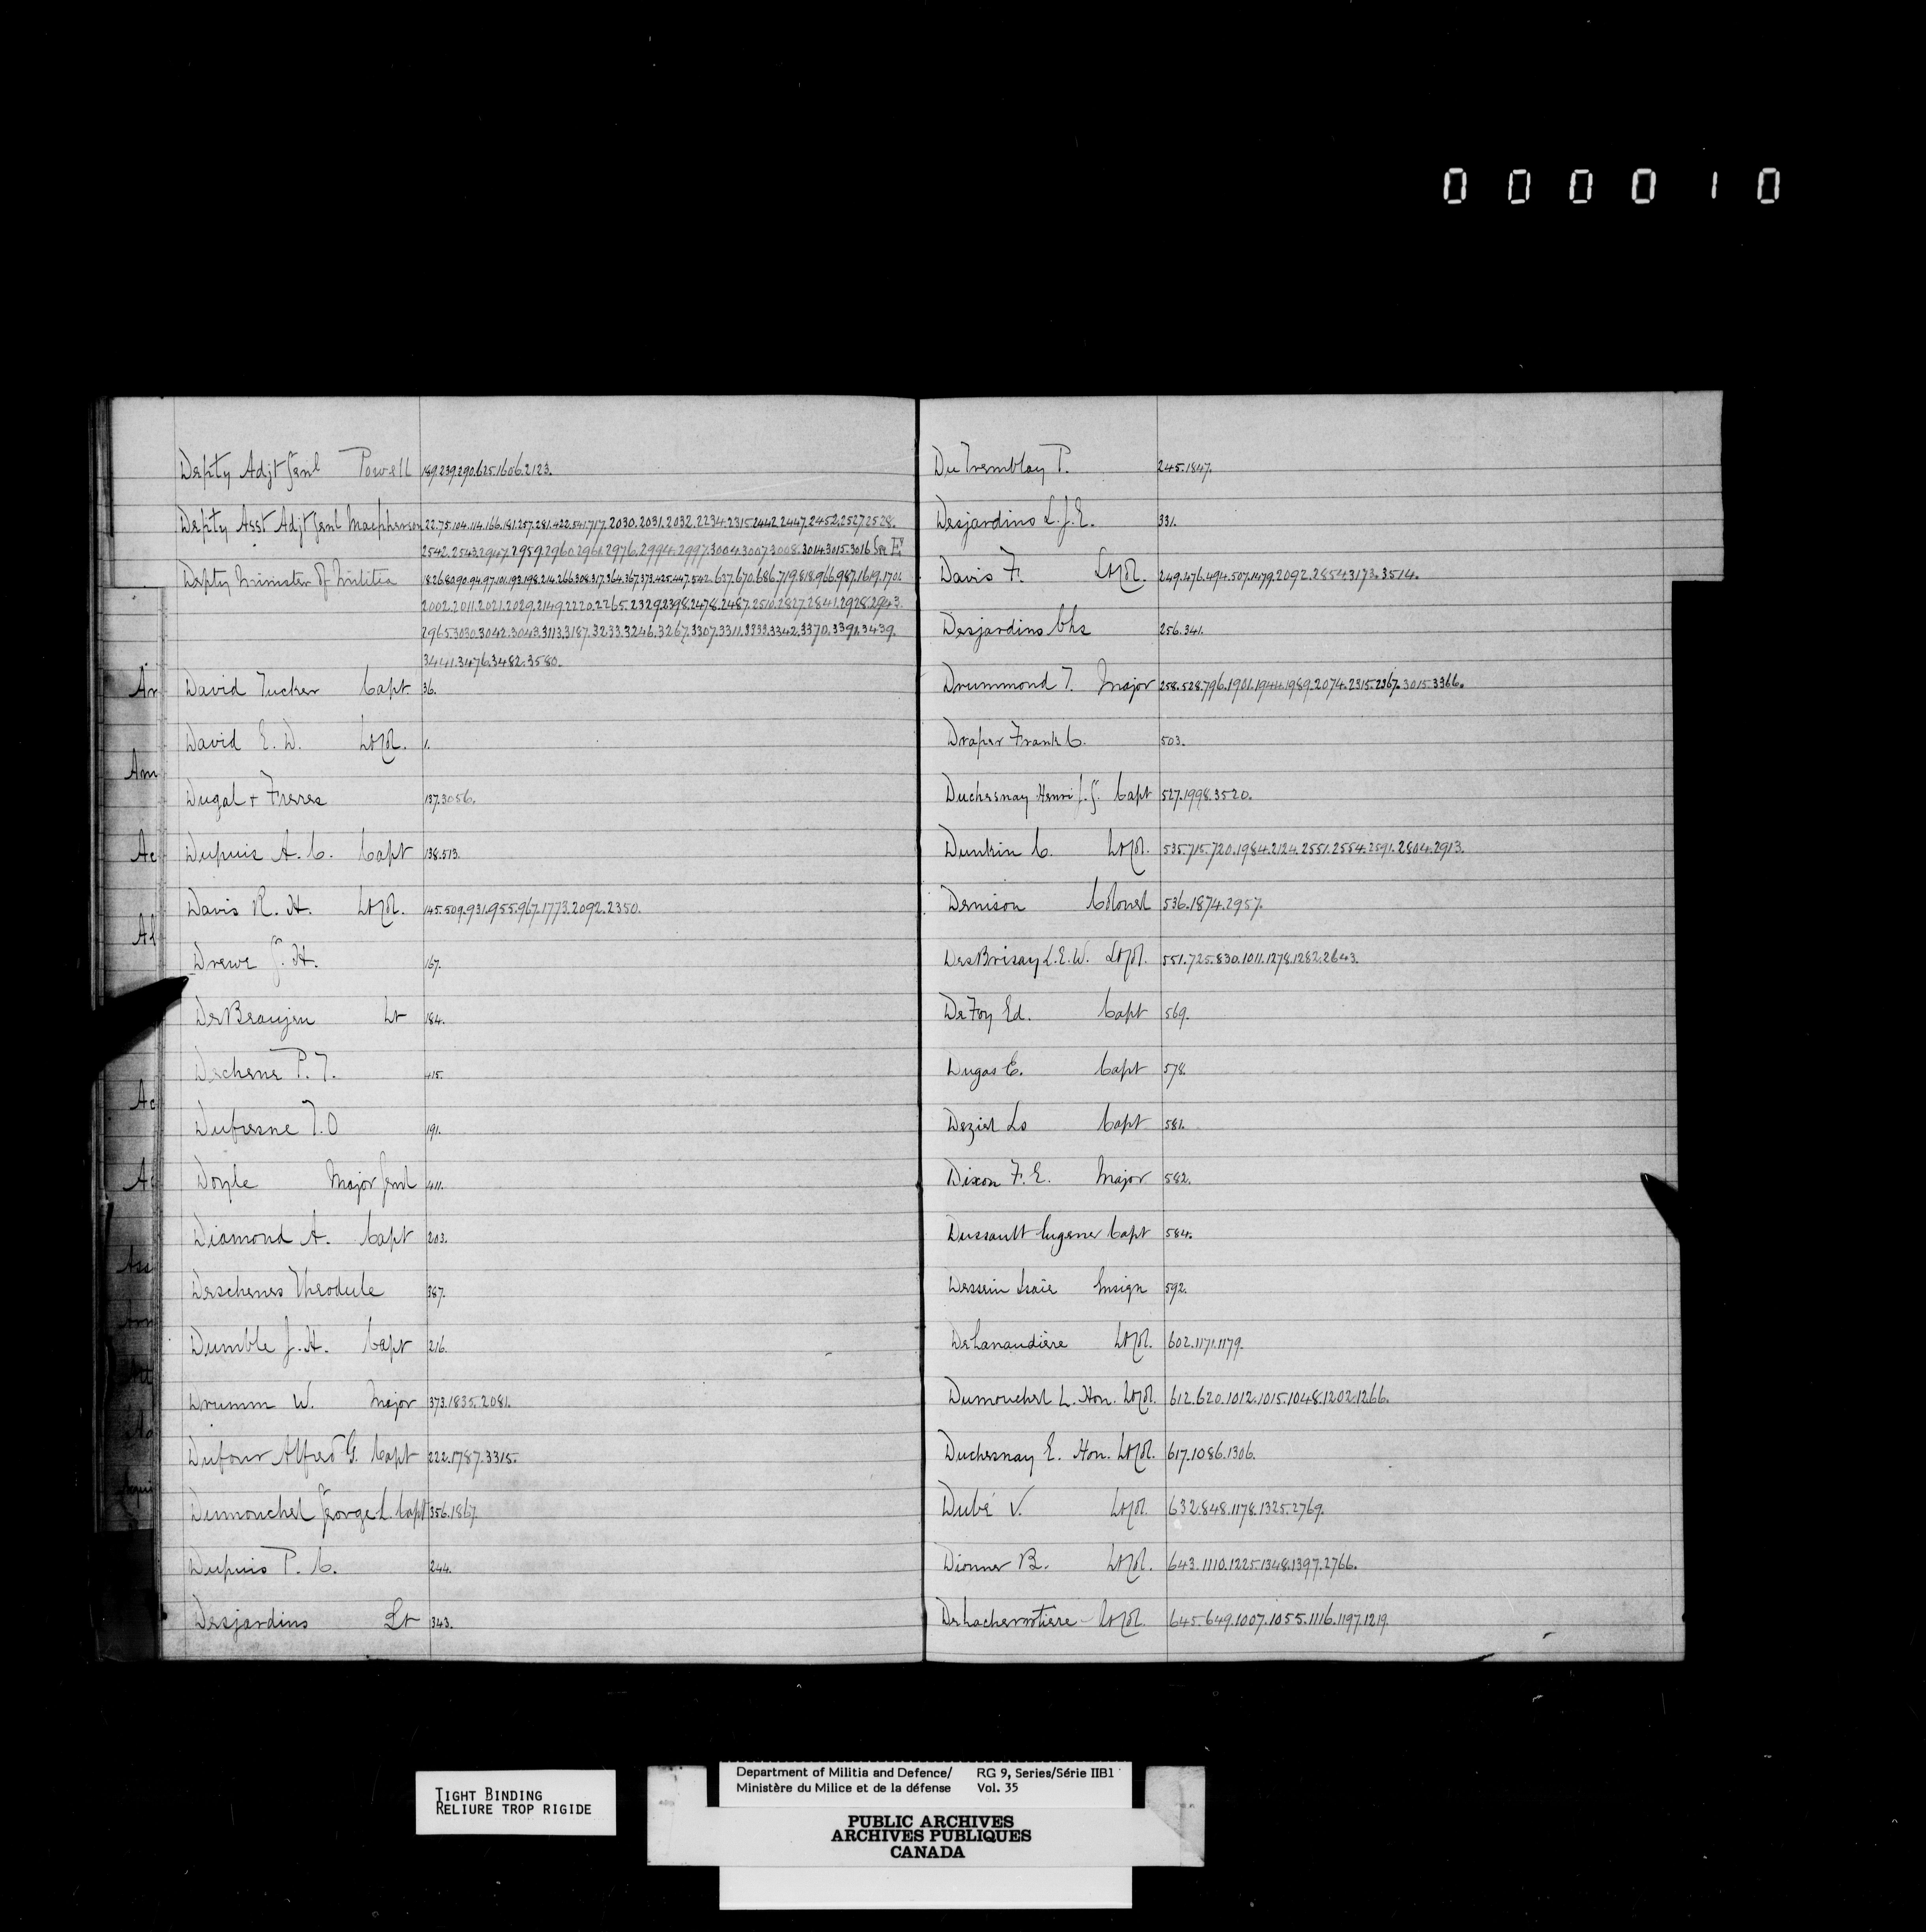 000010
Depty Adjt Genl Powell 189.239.290.625.1606.2123.
Depty Asst Adjt Genl Macpherson 22.75.104.114.166.181.257.281.422.541.717.2030.2031.2032.2234.2315.2442.2447.2452.2527.2528.
2542.2543.2947.2959.2960.2961.2976.2994.2997.3004.3007.3008.3014.3015.3016 See E
Depty Minister of Militia 18.26.80.90.94.97.101.193.198.214.266.308.317.364.367.373.425.447.542.637.670.686.719.818.966.987.1619.1702
2002.2011.2021.2029.2149.2220.2265.2329.2398.2478.2487.2510.2827.2841.2928.2943.
2965.3030.3042.3043.3113.3187.3233.3246.3267.3307.3311.3333.3342.3370.3391.3439.
3441.3476.3482.3580.
Ar
David Tucker Capt 36.
David E. D. Lt Col. 1.
Am
Dugal + Freres 137.3056.
Ac
Dupuis A. C. Capt 138.513.
Davis R. H. Lt Col. 145.509.931.955.967.1773.2092.2350.
Al
Drewe J. H. 167.
DeBeaujeu Lt 184.
Dechene P. T. 415.
Ac
Dufresne T. O 191.
Ac
Doyle Major Genl 411.
Diamond A. Capt 203.
Ass
Deschenes Theodule 387.
Arm
Dumble J. H. Capt 216.
Att
Drumm W. Major 373.1835.2081.
Dufour Alfred G. Capt 222.1787.3315.
Dumouchel George L. Capt 356.1867.
Dupuis P. C. 244.
Desjardins Lt 343.
DuTremblay P. 245.1847.
Desjardins L. J. E. 331.
Davis F. Lt Col. 249.476.494.507.1479.2092.2854.3173.3514.
Desjardins Chs 256.341.
Drummond T. Major 258.528.796.1901.1944.1989.2074.2315.2367.3015.3366.
Draper Frank C. 503.
Duchesnay Henri J. J. Capt 527.1998.3520.
Dunkin C. Lt Col. 535.715.720.1984.2124.2551.2554.2591.2804.2913.
Denison Colonel 536.1874.2957.
DesBrisay L. E. W. Lt Col. 551.725.830.1011.1278.1282.2643.
DeFoy Ed. Capt 569.
Dugas E. Capt 578.
Deziel Ls Capt 581.
Dixon F. E. Major 582.
Dussault Eugene Capt 584.
Dessein Isaie Ensign 592.
DeLanaudière Lt Col. 602.1171.1179.
Dumouchel L. Hon. Lt Col. 612.620.1012.1015.1048.1202.1266.
Duchesnay E. Hon. Lt Col. 617.1086.1306.
Dubé V. Lt Col. 632.848.1178.1325.2769.
Dionne B. Lt Col. 643.1110.1225.1348.1397.2766.
DeLachevrotiere Lt Col. 645.649.1007.1055.1116.1197.1219.
TIGHT BINDING
RELIURE TROP RIGIDE
Department of Militia and Defence/ RG 9, Series/Série IIB1
Ministère du Milice et de la défense Vol. 35
PUBLIC ARCHIVES
ARCHIVES PUBLIQUES
CANADA